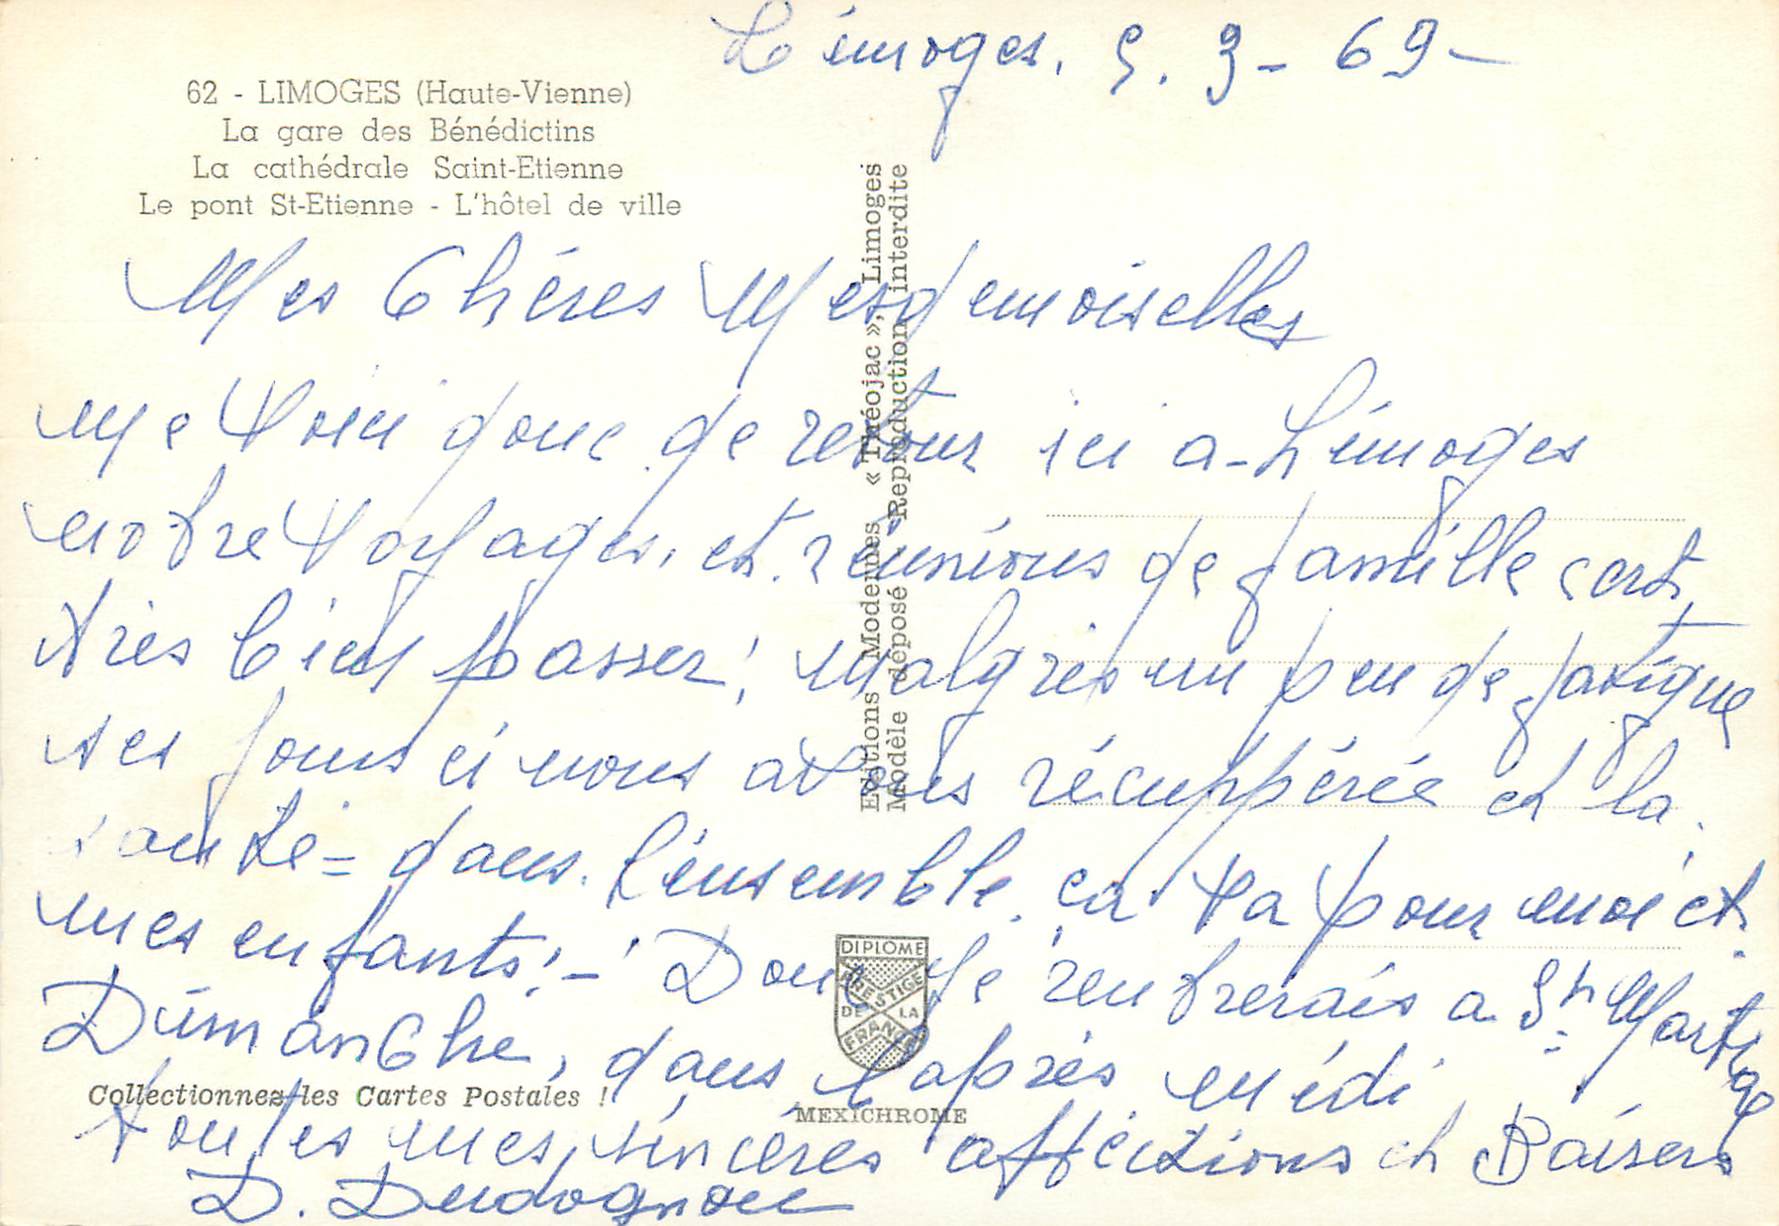 Limoges. 5. 9 - 69 -
62 - LIMOGES (Haute-Vienne)
La gare des Bénédictins
La cathédrale Saint-Etienne
Le pont St-Etienne - L'hôtel de ville
Mes Chéres Mesdemoiselles
me voici donc de retour ici a Limoges
notre voyages, et réunions de famille cest
tres bien passer! malgres un peu de fatigue
ses jours ci nous avons récuppérée et la
santé = dans l'ensemble ça va pour moi et
mes enfants! - Donc je rentrerais a St Martin
Dimanche, dans l'aprés midi
toutes mes, sincéres affections et Baisers
D.
Editions Modernes « Théojac », Limoges
Modèle déposé Reproduction interdite
DIPLOME
PRESTIGE
DE LA
FRANCE
Collectionnez les Cartes Postales !
MEXICHROME